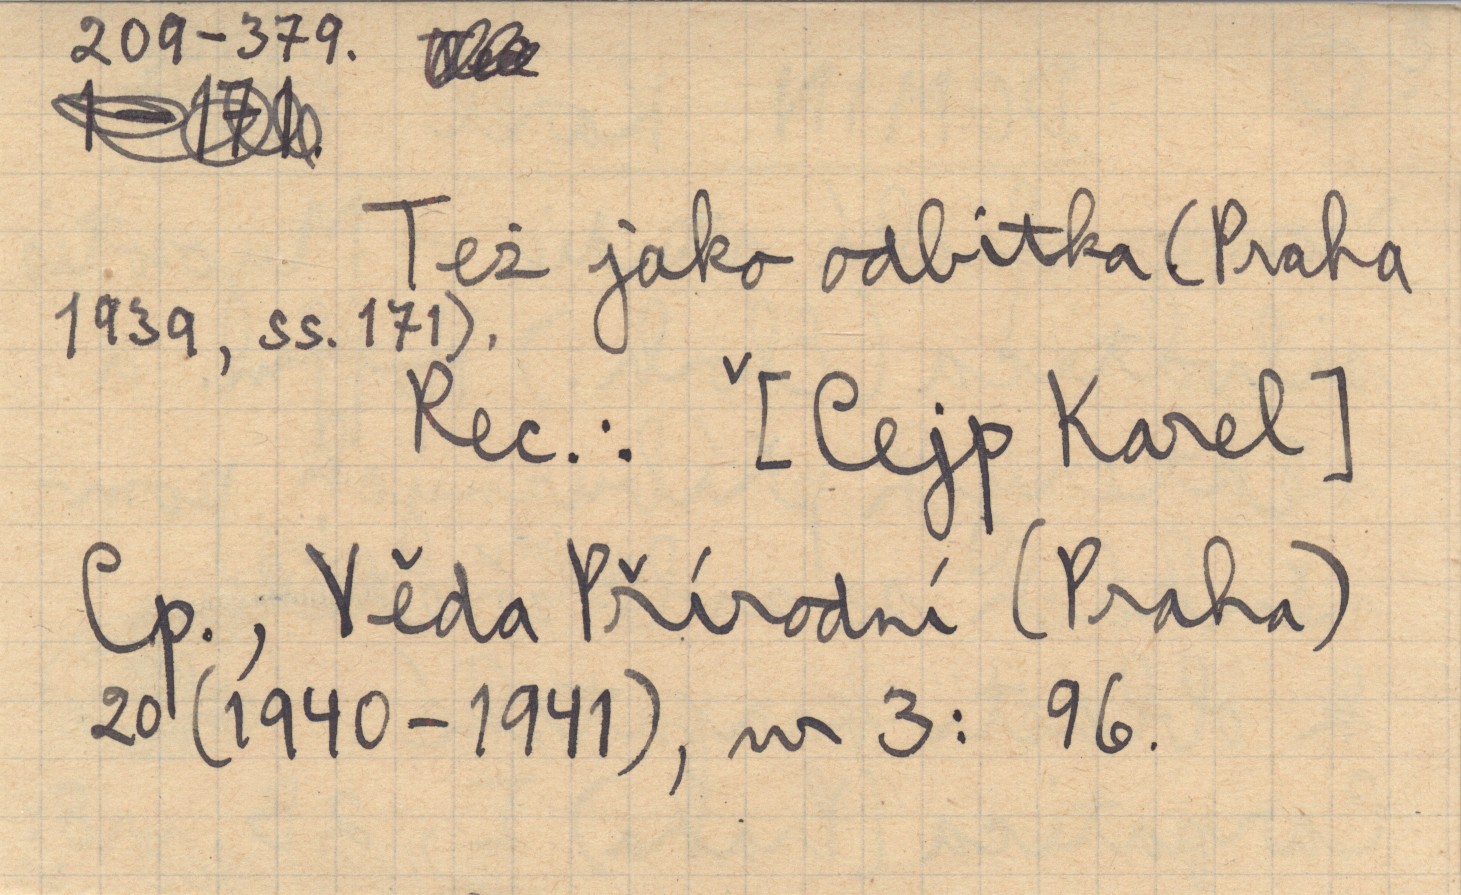 209-379.
1-171.
Też jako odbitka (Praha
1939, ss. 171).
Rec.: ˇ[Cejp Karel]
Cp., Věda Přírodní (Praha)
20 (1940-1941), nr 3: 96.